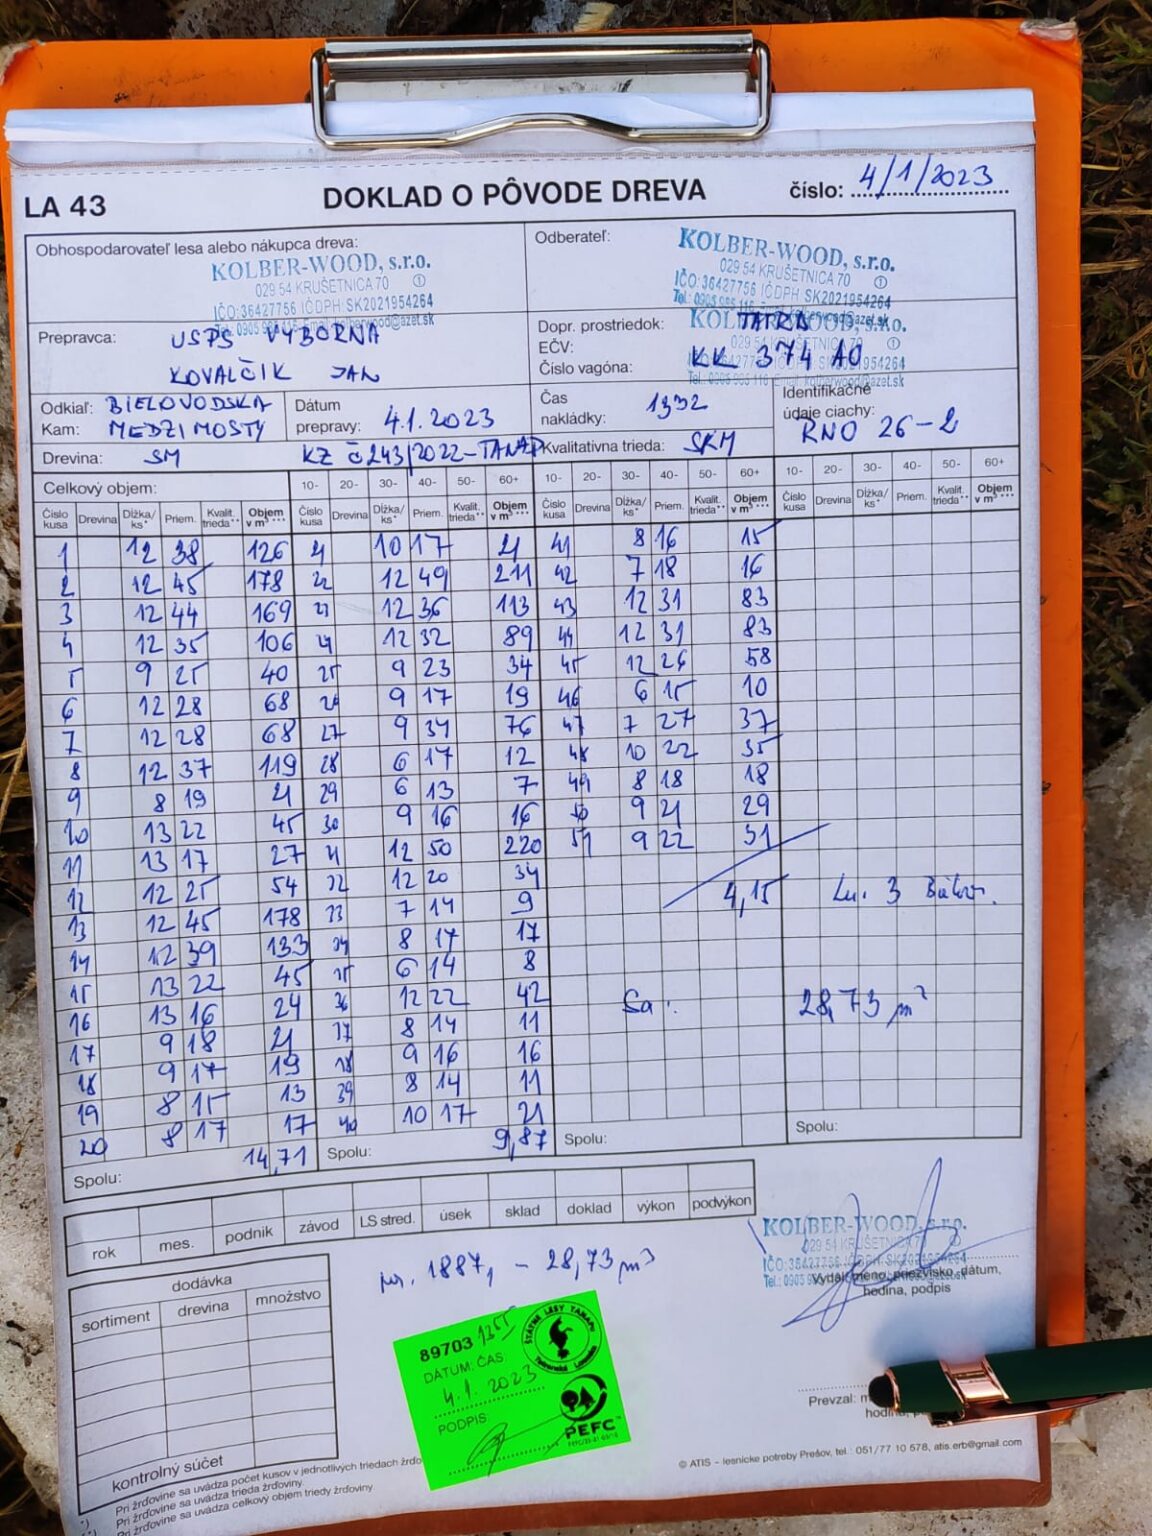 LA 43 DOKLAD O PÔVODE DREVA číslo: 4/1/2023
Obhospodarovateľ lesa alebo nákupca dreva:
KOLBER-WOOD, s.r.o.
029 54 KRUŠETNICA 70 ①
IČO:36427756 IČDPH:SK2021954264
Odberateľ:
KOLBER-WOOD, s.r.o.
029 54 KRUŠETNICA 70 ①
IČO:36427756 IČDPH SK2021954264
Prepravca: USPS VÝBORNA
KOVALČIK JAN
Dopr. prostriedok: TATRA
EČV: KK 374 AO
Číslo vagóna:
Odkiaľ: BIELOVODSKA
Kam: MEDZIMOSTY
Dátum prepravy: 4.1.2023
Čas nakládky: 1332
Identifikačné údaje ciachy:
RNO 26-2
Drevina: SM KZ č 243/2022-TANAP Kvalitatívna trieda: SKM
Celkový objem: 10- 20- 30- 40- 50- 60+ 10- 20- 30- 40- 50- 60+ 10- 20- 30- 40- 50- 60+
Číslo kusa Drevina Dĺžka/ks* Priem. Kvalit. trieda** Objem v m³*** Číslo kusa Drevina Dĺžka/ks* Priem. Kvalit. trieda** Objem v m³*** Číslo kusa Drevina Dĺžka/ks* Priem. Kvalit. trieda** Objem v m³*** Číslo kusa Drevina Dĺžka/ks* Priem. Kvalit. trieda** Objem v m³***
1 12 38 126 21 10 17 21 41 8 16 15
2 12 45 178 22 12 49 211 42 7 18 16
3 12 44 169 23 12 36 113 43 12 31 83
4 12 35 106 24 12 32 89 44 12 31 83
5 9 25 40 25 9 23 34 45 12 26 58
6 12 28 68 26 9 17 19 46 6 15 10
7 12 28 68 27 9 34 76 47 7 27 37
8 12 37 119 28 6 17 12 48 10 22 35
9 8 19 21 29 6 13 7 49 8 18 18
10 13 22 45 30 9 16 16 50 9 21 29
11 13 17 27 31 12 50 220 51 9 22 31
12 12 25 54 32 12 20 34 4,15
13 12 45 178 33 7 14 9
14 12 39 133 34 8 17 17
15 13 22 45 35 6 14 8
16 13 16 24 36 12 22 42 Sa: 28,73 m³
17 9 18 21 37 8 14 11
18 9 17 19 38 9 16 16
19 8 15 13 39 8 14 11
20 8 17 17 40 10 17 21
Spolu: 14,71 Spolu: 9,87 Spolu: Spolu:
rok mes. podnik závod LS stred. úsek sklad doklad výkon podvýkon
dodávka
sortiment drevina množstvo
kontrolný súčet
1887, - 28,73 m³
KOLBER-WOOD, s.r.o.
029 54 KRUŠETNICA 70 ①
IČO:36427756 IČDPH:SK2021954264
Vydal: meno, priezvisko, dátum,
hodina, podpis
89703
DÁTUM: ČAS:
4.1. 2023
PODPIS:
ŠTÁTNE LESY TANAPU
Tatranská Lomnica
PEFC™
Prevzal:
© ATIS – lesnícke potreby Prešov, tel.: 051/77 10 578, atis.erb@gmail.com
*) Pri žrďovine sa uvádza počet kusov v jednotlivých triedach
Pri žrďovine sa uvádza trieda žrďoviny.
Pri žrďovine sa uvádza celkový objem triedy žrďoviny